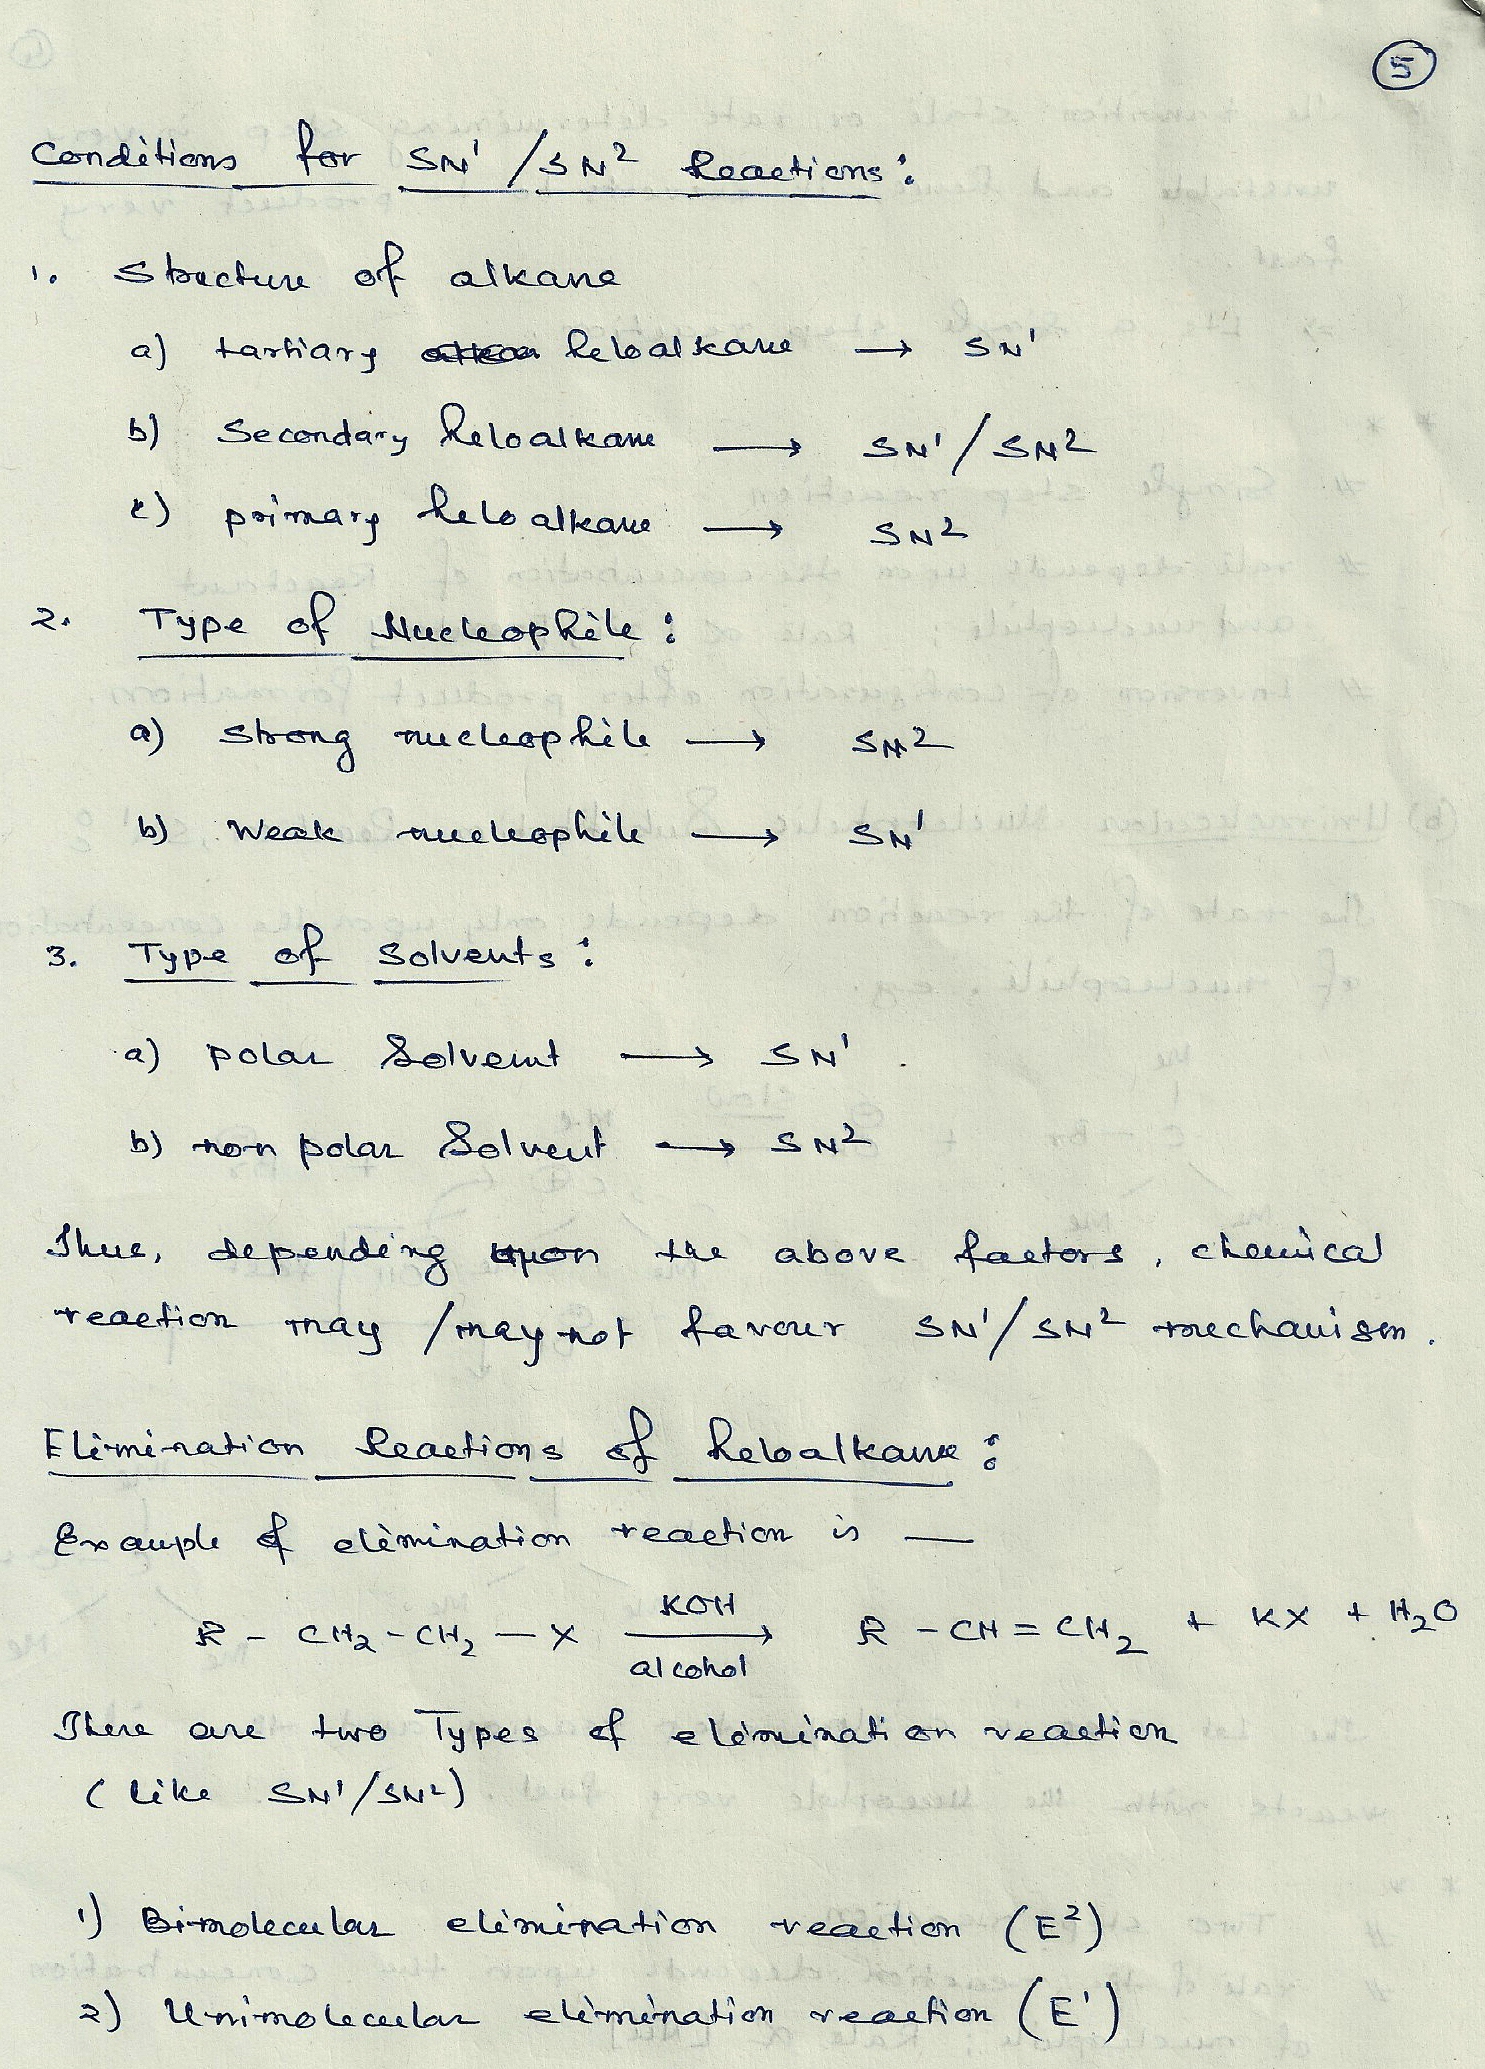 5
Conditions for SN1 / SN2 Reactions:
1. Structure of alkane
a) tartiary haloalkane → SN1
b) Secondary haloalkane → SN1 / SN2
c) primary haloalkane → SN2
2. Type of Nucleophile:
a) Strong nucleophile → SN2
b) Weak nucleophile → SN1
3. Type of Solvents:
a) polar Solvent → SN1.
b) non polar Solvent → SN2
Thus, depending upon the above factors, chemical
reaction may / may not favour SN1 / SN2 mechanism.
Elimination Reactions of haloalkane:
Example of elimination reaction is —
R - CH2 - CH2 — X KOH → alcohol R - CH = CH2 + KX + H2O
There are two Types of elimination reaction
( like SN1 / SN2)
1) Bimolecular elimination reaction (E2)
2) Unimolecular elimination reaction (E1)